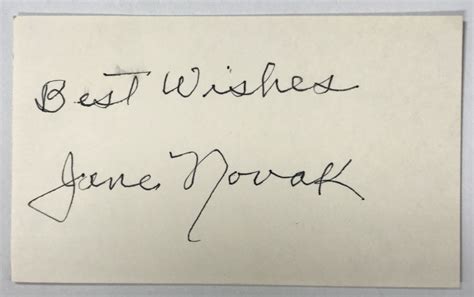 Best Wishes
Jane Novak